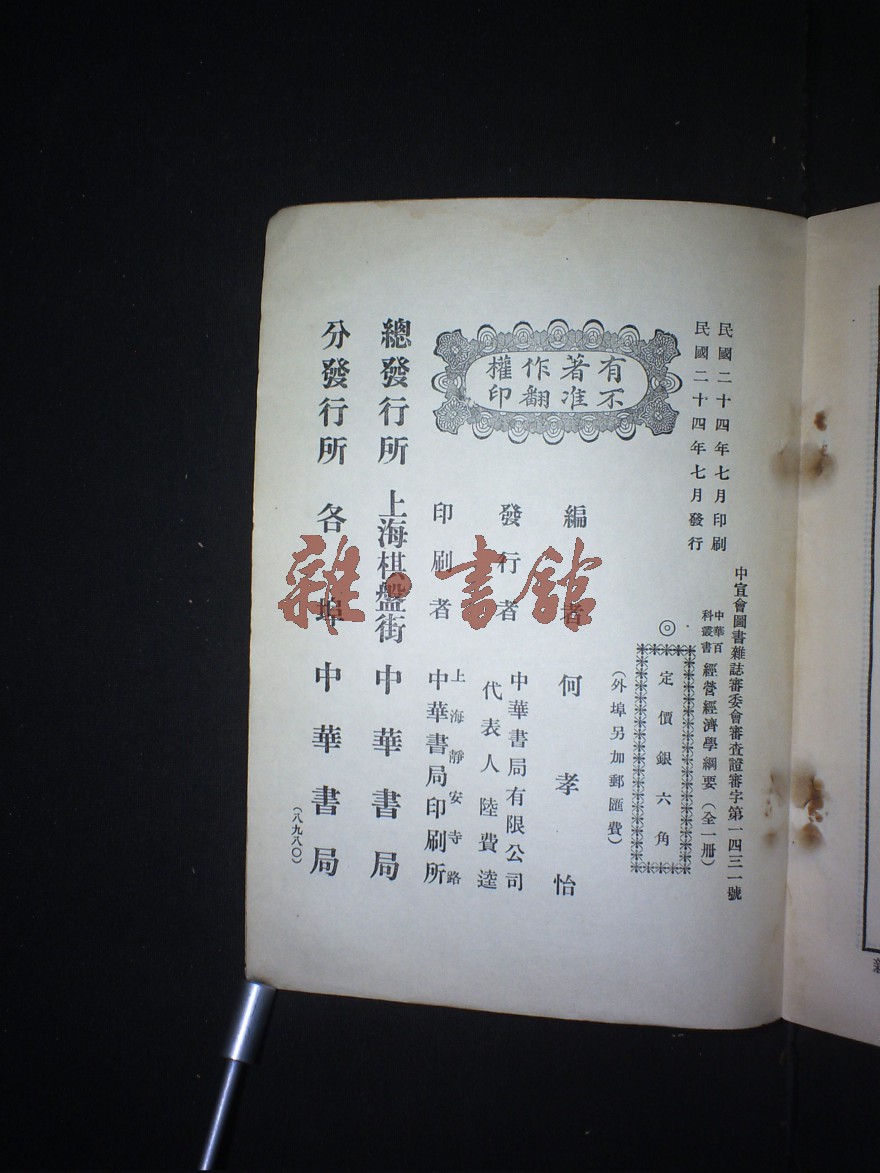 民國二十四年七月印刷
民國二十四年七月發行
中宣會圖書雜誌審委會審查證審字第一四三一號
中華百科叢書 經營經濟學綱要（全一册）
◎定價銀六角
（外埠另加郵匯費）
有著作權
不准翻印
編者 何孝怡
發行者 中華書局有限公司
代表人陸費逵
印刷者 上海靜安寺路
中華書局印刷所
總發行所 上海棋盤街 中華書局
分發行所 各埠 中華書局
（八九八〇）
雜·書館